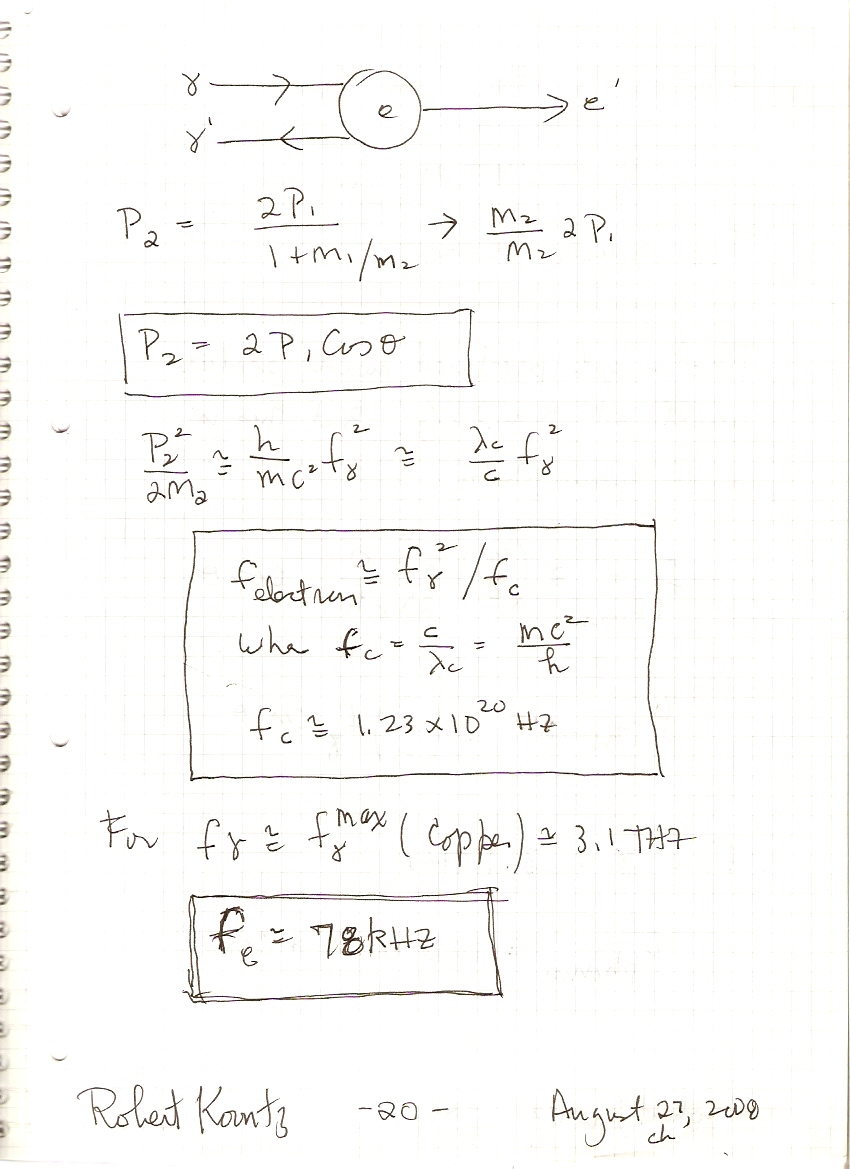 γ e e'
γ'
P₂ = 2P₁ / (1 + m₁/m₂) → m₂/m₂ 2P₁
P₂ = 2P₁ Cos θ
P₂²/2M₂ ≅ h/mc² fγ² ≅ λc/c fγ²
f electron ≅ fγ²/fc
Whe fc = c/λc = mc²/h
fc ≅ 1.23 × 10²⁰ HZ
For fγ ≅ fγ^max (Copper) ≅ 3.1 THZ
fe ≃ 78 kHZ
Robert Kountz -20- August 27, 2008
ch